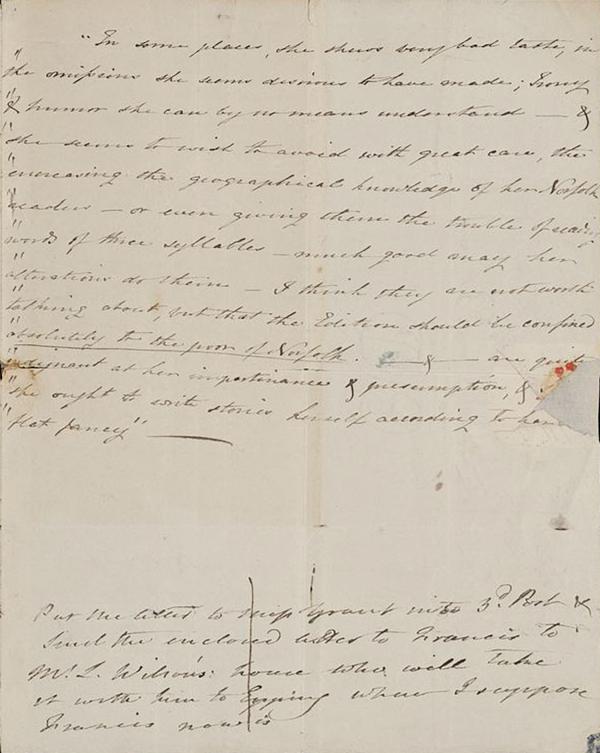 "In some places, she shews very bad taste, in
" the omissions she seems desirous to have made; Irony
" & humor she can by no means understand — &
" she seems to wish to avoid with great care, the
" encreasing the geographical knowledge of her Norfolk
" readers — or even giving them the trouble of reading
" words of three syllables — much good may her
" alterations do them — I think they are not worth
" talking about, but that the Edition should be confined
" absolutely to the poor of Norfolk. — & — are quite
" indignant at her impertinance & presumption, &
" she ought to write stories herself according to her
" flat fancy" —
Put the letter to Miss Grant into 3d. Post &
send the enclosed letter to Francis to
Mr. L. Wilson's: house who will take
it with him to Epping where I suppose
Francis now is